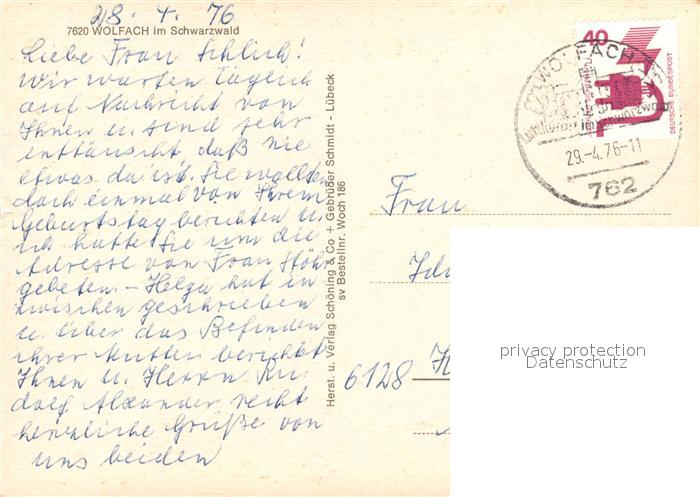 28. 4. 76
7620 WOLFACH im Schwarzwald
Liebe Frau Schlich!
Wir warten täglich
auf Nachricht von
Ihnen u. sind sehr
enttäuscht, daß nie
etwas da ist. Sie wollten
doch einmal von Ihrem
Geburtstag berichten u.
ich hatte Sie um die
Adresse von Frau Stöhr
gebeten. – Helga hat in
zwischen geschrieben
u. über das Befinden
ihrer Mutter berichtet
Ihnen u. Herrn Ru-
dolf Alexander recht
herzliche Grüße von
uns beiden
Herst. u. Verlag Schöning & Co + Gebrüder Schmidt - Lübeck
sv Bestellnr. Woch 186
40
DEUTSCHE BUNDESPOST
WOLFACH
Luftkurort im Schwarzwald
29.-4.76-11
762
Frau
6128
privacy protection
Datenschutz